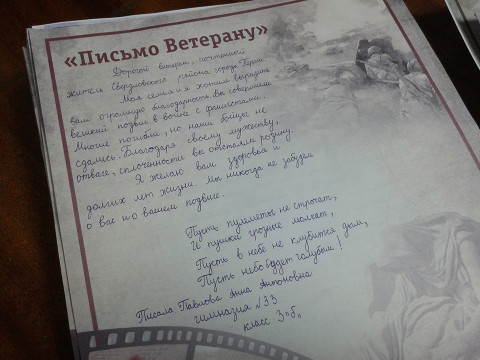 «Письмо Ветерану»
Дорогой ветеран, почтенный
житель Свердловского района города Перми.
Моя семья и я хотим выразить
вам огромную благодарность. Вы совершили
великий подвиг в войне с фашистами.
Многие погибли, но наши бойцы не
сдались. Благодаря своему мужеству,
отваге, сплоченности вы отстояли родину.
Я желаю вам здоровья и
долгих лет жизни. Мы никогда не забудем
о вас и о вашем подвиге.
Пусть пулемёты не строчат,
И пушки грозные молчат,
Пусть в небе не клубится дым,
Пусть небо будет голубым!
Писала: Павлова Анна Антоновна
гимназия №33
класс 3 «б»